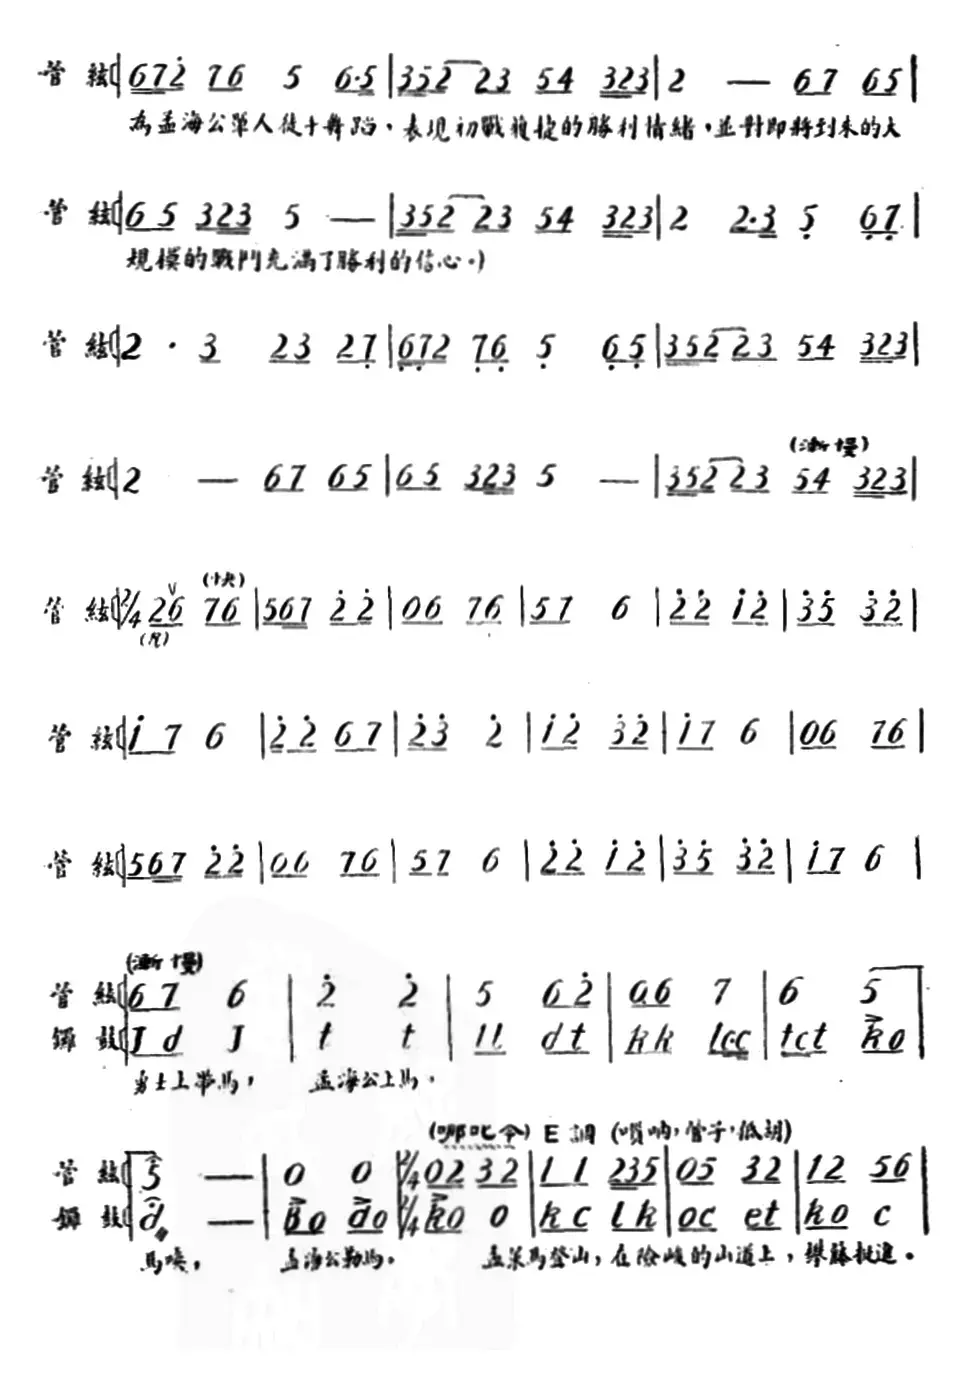 管絃 672̇ 76 5 6·5 | 352 23 54 323 | 2 — 67 65 |
為孟海公單人徒手舞蹈，表現初戰獲捷的勝利情緒，並對即將到來的大
管絃 65 323 5 — | 352 23 54 323 | 2 2·3 5̣ 6̣7̣ |
規模的戰鬥充滿了勝利的信心。)
管絃 2 · 3 23 27̣ | 6̣7̣2 7̣6̣ 5̣ 6̣5̣ | 352 23 54 323 |
(漸慢)
管絃 2 — 67 65 | 65 323 5 — | 352 23 54 323 |
(快)
管絃 2/4 26 76 | 567 2̇2̇ | 06 76 | 57 6 | 2̇2̇ 1̇2̇ | 3̇5̇ 3̇2̇ |
管絃 1̇7 6 | 2̇2̇ 67 | 2̇3̇ 2̇ | 1̇2̇ 3̇2̇ | 1̇7 6 | 06 76 |
管絃 567 2̇2̇ | 06 76 | 57 6 | 2̇2̇ 1̇2̇ | 3̇5̇ 3̇2̇ | 1̇7 6 |
(漸慢)
管絃 67 6 | 2̇ 2̇ | 5 62̇ | 06 7 | 6 5
鑼鼓 J d J | t t | ll d t | kk lc·c | tct ko
勇士上帶馬， 孟海公上馬。
(哪吒令) E調 (嗩吶，管子，低胡)
管絃 5 — | 0 0 | 2/4 02 32 | 11 235 | 05 32 | 12 56 |
鑼鼓 d — | Bo do | 2/4 ko 0 | kc lk | oc et | ko c |
馬嘶， 孟海公勒馬。 孟策馬登山，在險峻的山道上，攀藤挺進。